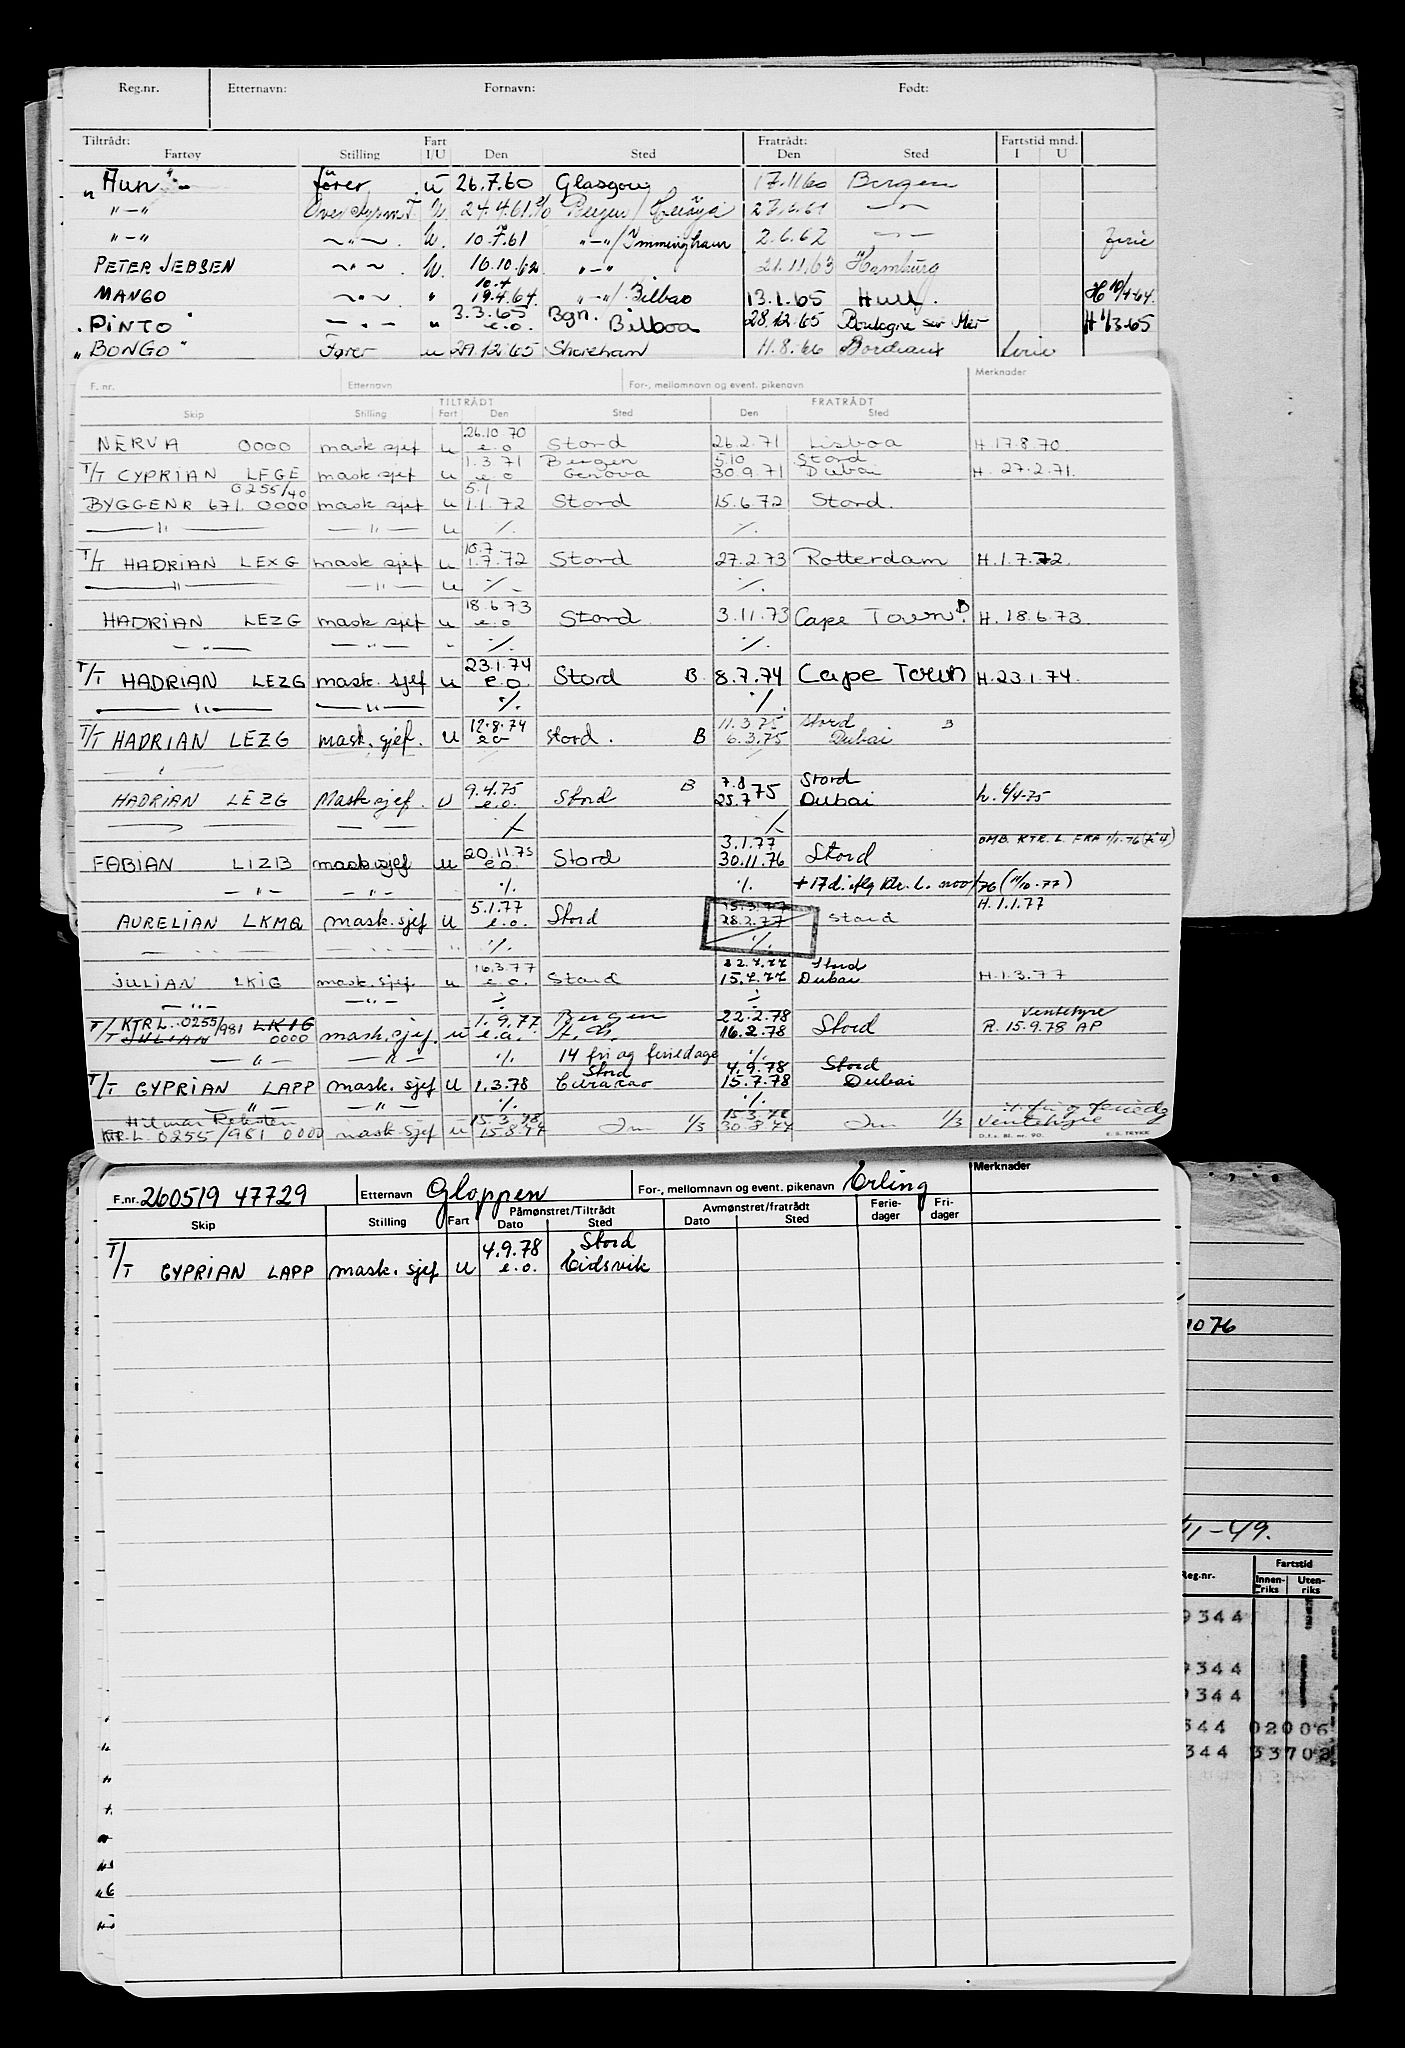 Reg.nr. Etternavn: Fornavn: Født:
Tiltrådt: Fart Fratrådt: Fartstid mnd.
Fartøy Stilling I/U Den Sted Den Sted I U
"Hun" fører u 26.7.60 Glasgow 17.11.60 Bergen
"-" U. 24.4.61 Bergen/ 27.6.61 -"-
"-" -"- U. 10.7.61 "-"/Immingham 2.6.62 -"- ferie
PETER JEBSEN -"- U. 16.10.62 "-" 21.11.63 Hamburg
MANGO -"- " 10.4 19.4.64. "-"/Bilbao 13.1.65 Hull. H 10/4-64.
"PINTO" -"- " 3.3.65 e.o. Bgn. Bilboa 28.12.65 Boulogne sur Mer H 1/3-65
"BONGO" Fører u 29.12.65 Shoreham 11.8.66 Bordeaux ferie
F. nr. Etternavn For-, mellomnavn og event. pikenavn Merknader
TILTRÅDT FRATRÅDT
Skip Stilling Fart Den Sted Den Sted
NERVA 0000 mask sjef u 26.10.70 e.o Stord 26.2.71 Lisboa H. 17.8.70.
T/T CYPRIAN LFGE mask sjef u 1.3.71 e.o Bergen Genova 5.10 30.9.71 Stord Dubai H. 27.2.71.
BYGGENR 671. 0255/40 0000 mask sjef u 5.1 1.1.72 Stord 15.6.72 Stord.
—"— —"— u ./. ./.
T/T HADRIAN LEXG mask sjef u 10.7 1.7.72 Stord 27.2.73 Rotterdam H. 1.7.72.
—"— —"— u ./. ./.
HADRIAN LEZG mask sjef u 18.6.73 e.o Stord 3.11.73 Cape Town B. H. 18.6.73
—"— —"— " ./. ./.
T/T HADRIAN LEZG mask. sjef u 23.1.74 e.o. Stord B 8.7.74 Cape Town H.23.1.74.
—"— —"— ./. ./.
T/T HADRIAN LEZG mask. sjef. U 12.8.74 e.o Stord. B 11.3.75 6.3.75 Stord Dubai B
"
HADRIAN LEZG Mask sjef. U 9.4.75 e.o. Stord B 7.8 25.7 75 Stord Dubai h. 4/4-75
—"— —"— ./. ./.
FABIAN LIZB mask sjef u 20.11.75 e.o. Stord 3.1.77 30.11.76 Stord OMB. KTR. L. FRA 1/1-76
—"— —"— ./. ./. +17d. iflg Ktr. L. nov/76 (11/10-77)
AURELIAN LKMQ mask. sjef u 5.1.77 e.o. Stord 15.3.77 28.2.77 Stord H.1.1.77
—"— —"— " ./. ./.
JULIAN LKIG mask. sjef u 16.3.77 e.o. Stord 22.7.77 15.7.77 Stord Dubai H. 1.3.77
—"— —"— ./. ./.
T/T KTR L. 0255/981 JULIAN LKIG 0000 mask. sjef. u 1.9.77 e.o. Bergen 22.2.78 16.2.78 Stord Ventehyre R. 15.9.78 AP
—"— —"— ./. 14 fri og feriedage ./.
T/T CYPRIAN LAPP mask. sjef U 1.3.78 Stord Curacao 4.9.78 15.7.78 Stord Dubai
—"— —"— ./. ./.
Hilmar Reksten KTR. L. 0255/981 0000 mask. sjef u 15.3.78 15.8.77 1/3 15.3.78 30.8.77 1/3 fri og feriedg Ventehyre
D.f.s. Bl. nr. 90. E. S. TRYKK
F.nr. 260519 47729 Etternavn Gloppen For-, mellomnavn og event. pikenavn Erling Merknader
Skip Stilling Fart Påmønstret/Tiltrådt Dato Sted Avmønstret/fratrådt Dato Sted Ferie-dager Fri-dager
T/T CYPRIAN LAPP mask. sjef U 4.9.78 e.o. Stord Eidsvik
1076
11-49.
Reg.nr. Fartstid
Innen-riks Uten-riks
9344
9344
9344
344 02006
344 33702